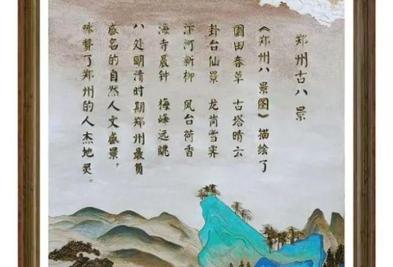 郑州古八景
《郑州八景图》描绘了
圃田春草 古塔晴云
卦台仙景 龙岗雪霁
汴河新柳 凤台荷香
海寺晨钟 梅峰远眺
八处明清时期郑州最负
盛名的自然人文盛景，
咏赞了郑州的人杰地灵。